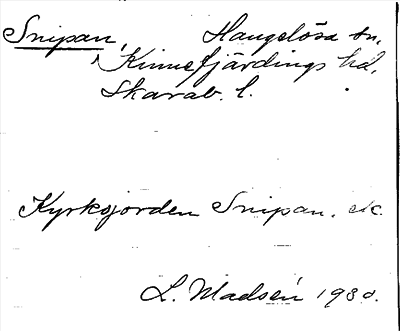 Snipan, Hangelösa sn,
Kinnefjärdings hd,
Skarab. l.
Kyrkojorden Snipan. etc.
L. Madsén 1930.